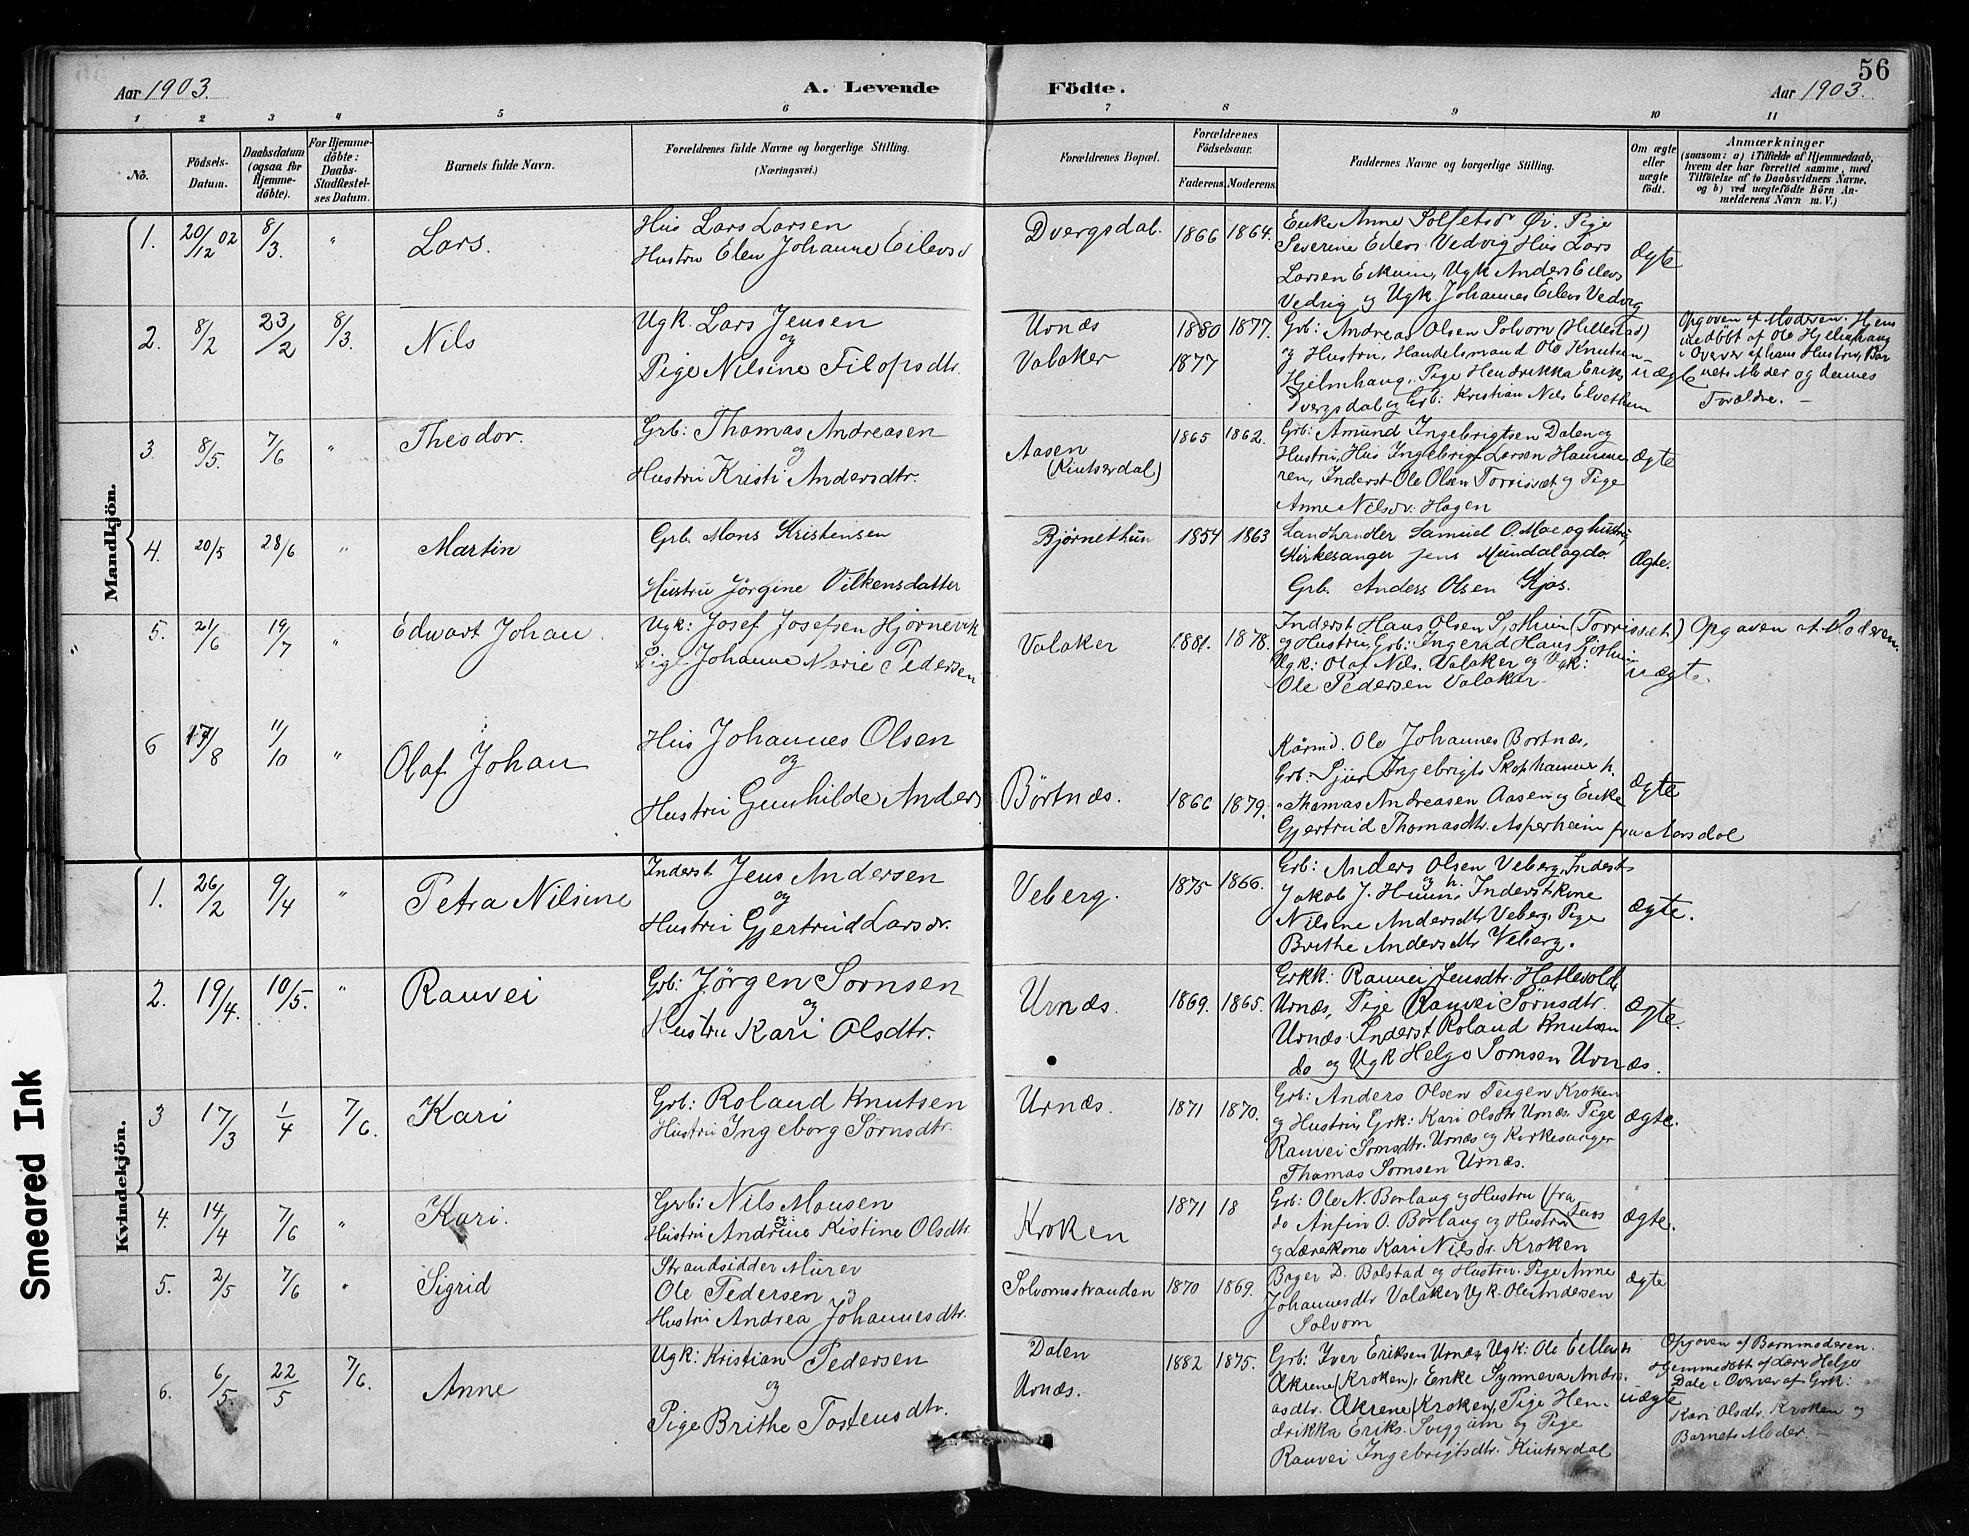 56
Aar 1903. A. Levende Födte. Aar 1903.
1 2 3 4 5 6 7 8 9 10 11
No. Födsels-Datum. Daabsdatum (ogsaa for Hjemme-döbte). For Hjemme-döbte: Daabs-Stadfæstel-ses Datum. Barnets fulde Navn. Forældrenes fulde Navne og borgerlige Stilling. (Næringsvei.) Forældrenes Bopæl. Forældrenes Födselsaar. Faderens. Moderens. Faddernes Navne og borgerlige Stilling. Om ægte eller uægte födt. Anmærkninger (saasom: a) i Tilfælde af Hjemmedaab, hvem der har forrettet samme, med Tilföielse af to Daabsvidners Navne, og b) ved uægtefödte Börn An-melderens Navn m. V.)
Mandkjön.
1. 20/12 02 8/3. " Lars. Hus Lars Larsen
Hustru Elen Johanne Eilevsd
Dvergsdal. 1866 1864. Enke Anne Solfestsdr Øv. Pige
Severine Eilevs. Vedvig Hus Lars
Larsen Eikum, Ugk Anders Eilevs
Vedvig og Ugk. Johannes Eilevs Vedvig
ægte
2. 8/2 23/2 8/3. Nils Ugk. Lars Jensen
og
Pige Nilsine Filopsdtr.
Urnæs
Valaker
1880 1877.
1877
Grb: Andreas Olsen Solvorn (Hillestad)
og Hustru, Handelsmand Ole Knutsen
Hjelmhaug, Pige Hendrikka Eriks
Dvergsdal og Grb: Kristian Nils Elvethun
uægte
Opgaven af Moderen. Hjem
medöbt af Ole Hjelmhaug
i Overver af hans Hustru, Bar
nets Moder og dennes
Forældre. —
3. 8/5. 7/6 " Theodor. Grb: Thomas Andreasen
og
Hustru Kristi Andersdtr.
Aasen
(Kintserdal)
1865 1862. Grb: Amund Ingebrigtsen Dalen og
Hustru, Hus Ingebrigt Larsen Hamme
ren, Inderst Ole Olsen Torvisæt og Pige
Anne Nilsdr. Hagen
ægte
4. 20/5 28/6 " Martin Grb. Mons Kristensen
Hustru Jörgine Vilkensdatter
Bjørnethun 1854 1863 Landhandler Samuel O. Moe og hustru,
Kirkesanger Jens Mundal og do
Grb. Anders Olsen Kjos.
Ægte.
5. 21/6 19/7 " Edvart Johan. Ugk: Josef Josefsen Hjørnevik
Pige Johanne Marie Pedersen
Valaker 1881. 1878. Inderst Hans Olsen Sjøthun (Torvisæt)
og Hustru, Grb: Ingerid Hans Sjöthun
Ugk: Olaf Nils. Valaker og Ugk:
Ole Pedersen Valaker
uægte.
Opgaven af Moderen.
6 17/8 11/10 " Olaf Johan Hus Johannes Olsen
og
Hustru Gunhilde Anders
Børtnæs. 1866 1879. Kårmd. Ole Johannes Bortnæs,
Grb: Sjur Ingebrigts Skophammer h.
" Thomas Andreasen Aasen og Enke
Gjertrud Thomasdtr. Asperheim fra Aarsdal
ægte
Kvindekjön.
1. 26/2 9/4 " Petra Nilsine Inderst Jens Andersen
og
Hustru Gjertrud Larsdr.
Veberg. 1875 1866. Grb: Anders Olsen Veberg, Inderst
og h.
Jakob J. Huun, Inderstkone
Nilsine Andersdtr Veberg, Pige
Brithe Andersdtr Veberg.
ægte.
2. 19/4. 10/5. " Ranvei Grb: Jörgen Sörnsen
og
Hustru Kari Olsdtr.
Urnæs. 1869. 1865. Grkk: Ranvei Jensdtr. Hatlevold,
Urnæs, Pige Ranvei Sörnsdtr.
Urnæs Inderst Roland Knutsen
do og Ugk Helge Sörnsen Urnæs.
ægte.
3 17/3 1/4 7/6. Kari Grb: Roland Knutsen
Hustru Ingeborg Sörnsdtr.
Urnæs. 1871 1870. Grb: Anders Olsen Teigen Kroken
og Hustru, Grk: Kari Olsdtr Urnæs, Pige
Ranvei Sörnsdtr. Urnæs og Kirkesanger
Thomas Sörnsen Urnæs.
ægte.
4. 14/4 7/6 " Kari. Grb: Nils Monsen
og
Hustru Andrine Kistine Olsdtr.
Kroken 1871 18 Grb: Ole N. Borlaug og Hustru (fra
do Anfin O. Borlaug og Hustru
og Lærekone Kari Nilsdr. Kroken
ægte.
5. 2/5 7/6 " Sigrid Strandsidder Murer
Ole Pedersen og
Hustru Andrea Johannesdtr.
Solvornsstranden 1870 1869. Bager D. Bolstad og Hustru. Pige Anne
Johannesdtr Valaker Ugk. Ole Andersen
Solvorn
ægte
6. 6/5. 22/5 7/6. Anne Ugk: Kristian Pedersen
og
Pige Brithe Tostensdtr.
Dalen
Urnæs.
1882 1875. Grb: Iver Eriksen Urnæs, Ugk: Ole Ellend
Akrene (Kroken), Enke Synneva Andre
asdtr. Akrene (Kroken), Pige Hen
drikka Eriks. Sviggum og Pige
Ranvei Ingebrigtsdtr. Kintserdal
uægte
Opgaven af Barnmoderen.
Hjemmedöbt af Lærer Helge
Dale i Overvær af Grk:
Kari Olsdtr. Kroken og
Barnets Moder. —
Smeared Ink